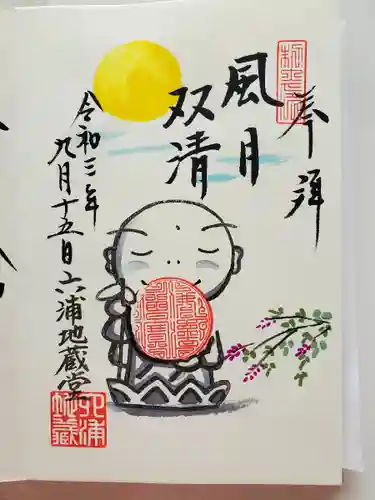 奉拝
風月
双清
令和三年
九月十五日 六浦地蔵堂
六浦
地蔵